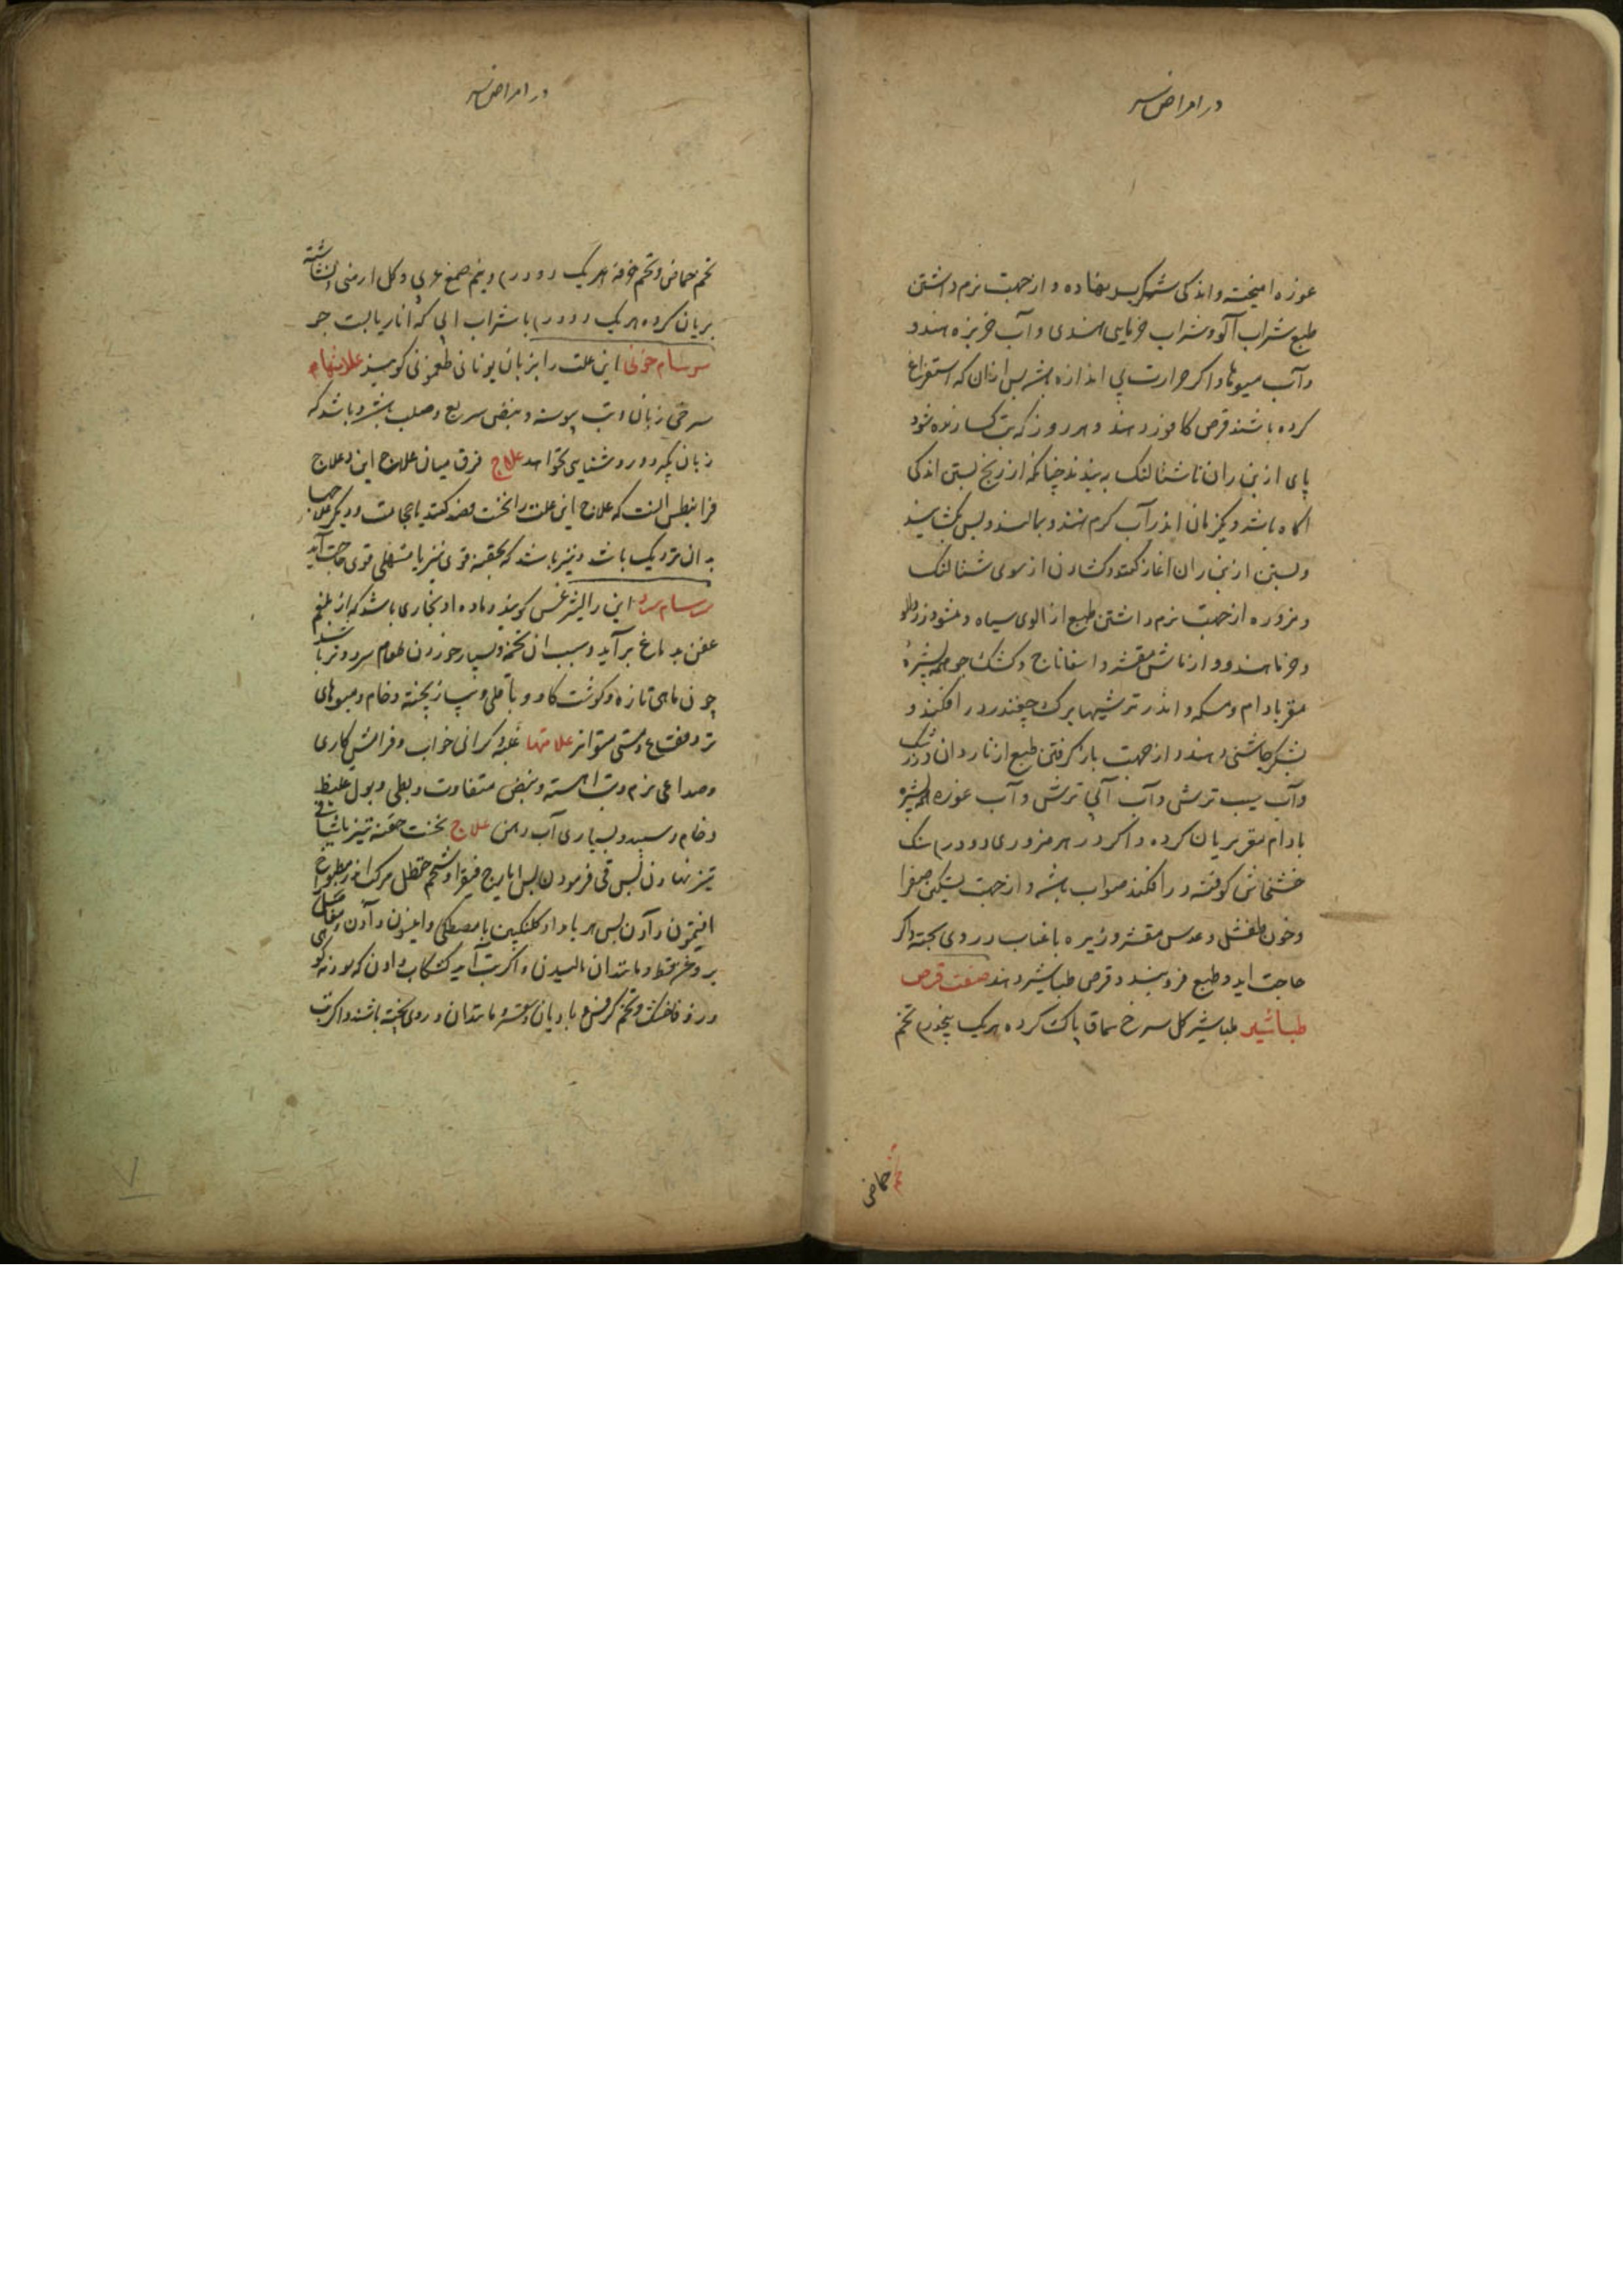 در امراض سر
غوره امیخته و اندکی شکر بر نهاده و از جهت نرم داشتن
طبع شراب آلو و شراب خرمای هندی و آب خربزه هندو
و آب میوها و اکر حرارت بی اندازه باشد پس ازان که استفراغ
کرده باشند قرص کافور دهند و هر روز که تب کسارنده شود
پای از بن ران تا شتالنک به بندند چنانکه از رنج بستن اندکی
اکاه باشد و یکزمان اندر آب کرم نهند و بمالند و پس بکشایند
و بستن از بن ران اغاز کنند و کشادن از سوی شتالنک
و مزوره از جهت نرم داشتن طبع از الوی سیاه و
و خرما هندو و از ماش مقشر و اسفاناج و کشک جو همه بشیرهٔ
مغز بادام و مسکه و اندر ترشیها برک چغندر در افکنند و
بشکر چاشنی دهند و از جهت باز کرفتن طبع از نار دان و زرشک
و آب سیب ترش و آب آبی ترش و آب غوره همه بشیره
بادام مغز بریان کرده و اکر در هر مزوری دو درم سنک
خشخاش کوفته در افکنند صواب باشد و از جهت تسکین صفرا
و خون طفشل و عدس مقشر و زیره با عناب در وی پخته و اکر
حاجت اید و طبع فرو بندد قرص طباشیر دهند صفت قرص
طباشیر طباشیر کل سرخ سماق پاک کرده هر یک پنجدرم تخم
تخم حماض
در امراض سر
تخم حماض و تخم خرفه هر یک دو درم و نیم صمغ عربی و کل ارمنی و نشاسته
بریان کرده هر یک دو درم با شراب ابی که انار یا بست جو
سرسام خونی این علت را بزبان یونانی کویند علامتها
سرخی زبان و تب پیوسته و نبض سریع و صلب باشد و باشد که
زبان بکیرد و روشنایی نخواهد علاج فرق میان علاج این و علاج
فرانیطس انست که علاج این علت را نخست فصد کنند یا حجامت و دیکر علاجها
بدان نزدیک باشد و نیز باشد که بحقنه قوی نیز یا مسهلی قوی حاجت آید
سرسام سرد این را لیثرغس کویند و ماده او بخاری باشد که از بلغم
عفن بدماغ بر آید و سبب ان تخمه و بسیار خوردن طعام سرد و تر باشد
چون ماهی تازه و کوشت کاو و باقلی و پیاز پخته و خام و میوهای
تر و فقاع و مستی متواتر علامتها غلبه کرانی خواب و فرامش کاری
و صداعی نرم و تب اهسته و نبض متفاوت و بطی و بول غلیظ
و خام و سپید و بسیاری آب دهن علاج نخست حقنه تیز یا شیافی
تیز نهادن پس قی فرمودن پس ایارج فیقرا و شحم حنظل مرکب اندر مطبوخ
افتیمون دادن پس هر بامداد کلنکبین با مصطکی و انیسون دادن و مفاصل
بروغن قسط و مانندان مالیدن و اکر تب آید کشکاب دادن که بوزنه کوهی
و رازیانه خشک و تخم کرفس و بادیان و سعتر و مانندان در وی پخته باشند و اکر تب